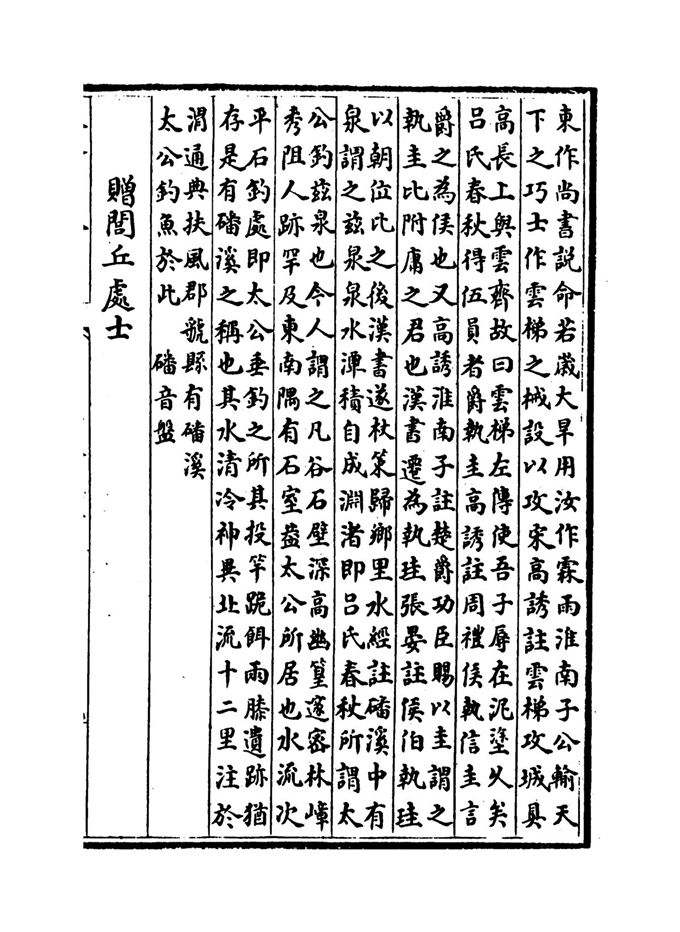 東作尚書説命若嵗大旱用汝作霖雨淮南子公輸天
下之巧士作雲梯之械設以攻宋高誘註雲梯攻城具
高長上與雲齊故曰雲梯左傳使吾子辱在泥塗乆矣
吕氏春秋得伍員者爵執圭高誘註周禮侯執信圭言
爵之為侯也又高誘淮南子註楚爵功臣賜以圭謂之
執圭比附庸之君也漢書遷為執珪張晏註侯伯執珪
以朝位比之後漢書遂杖策歸鄉里水經註磻溪中有
泉謂之兹泉泉水潭積自成淵渚即吕氏春秋所謂太
公釣兹泉也今人謂之凡谷石壁深高幽篁邃密林嶂
秀阻人跡罕及東南隅有石室葢太公所居也水流次
平石釣處即太公垂釣之所其投竿跪餌兩膝遺跡猶
存是有磻溪之稱也其水清冷神異北流十二里注於
渭通典扶風郡虢縣有磻溪
太公釣魚於此　磻音盤
贈閭丘處士